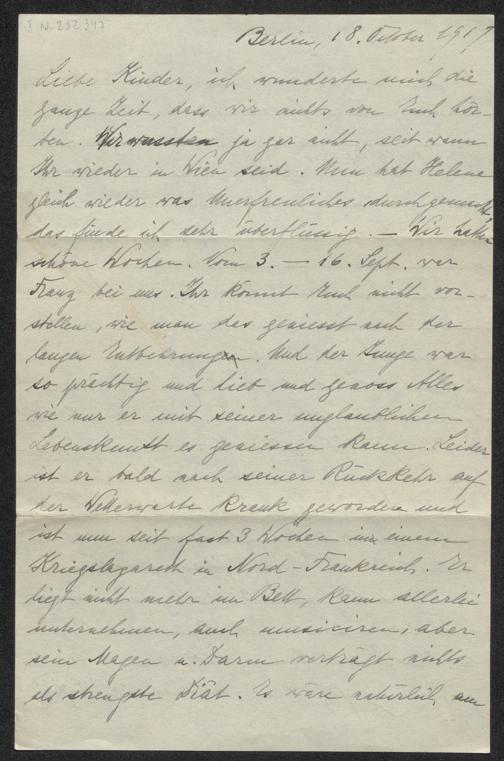 I N. 232.347
Berlin, 18. October 1917
Liebe Kinder, ich wunderte mich die
ganze Zeit, dass wir nichts von Euch hör-
ten. Wir wussten ja gar nicht, seit wann
Ihr wieder in Wien seid. Nun hat Helene
gleich wieder was Unerfreuliches durchgemacht,
das finde ich sehr überflüssig. — Wir hatten
schöne Wochen. Vom 3. — 16. Sept. war
Franz bei uns. Ihr könnt Euch nicht vor-
stellen, wie man das geniesst nach der
langen Entbehrung. Und der Junge war
so prächtig und lieb und genoss Alles
wie nur er mit seiner unglaublichen
Lebenskunst es geniessen kann. Leider
ist er bald nach seiner Rückkehr auf
der Wetterwarte krank geworden und
ist nun seit fast 3 Wochen in einem
Kriegslazarett in Nord-Frankreich. Er
liegt nicht mehr im Bett, kann allerlei
unternehmen, auch musiciren, aber
sein Magen u. Darm verträgt nichts
als strengste Diät. Es wäre natürlich am